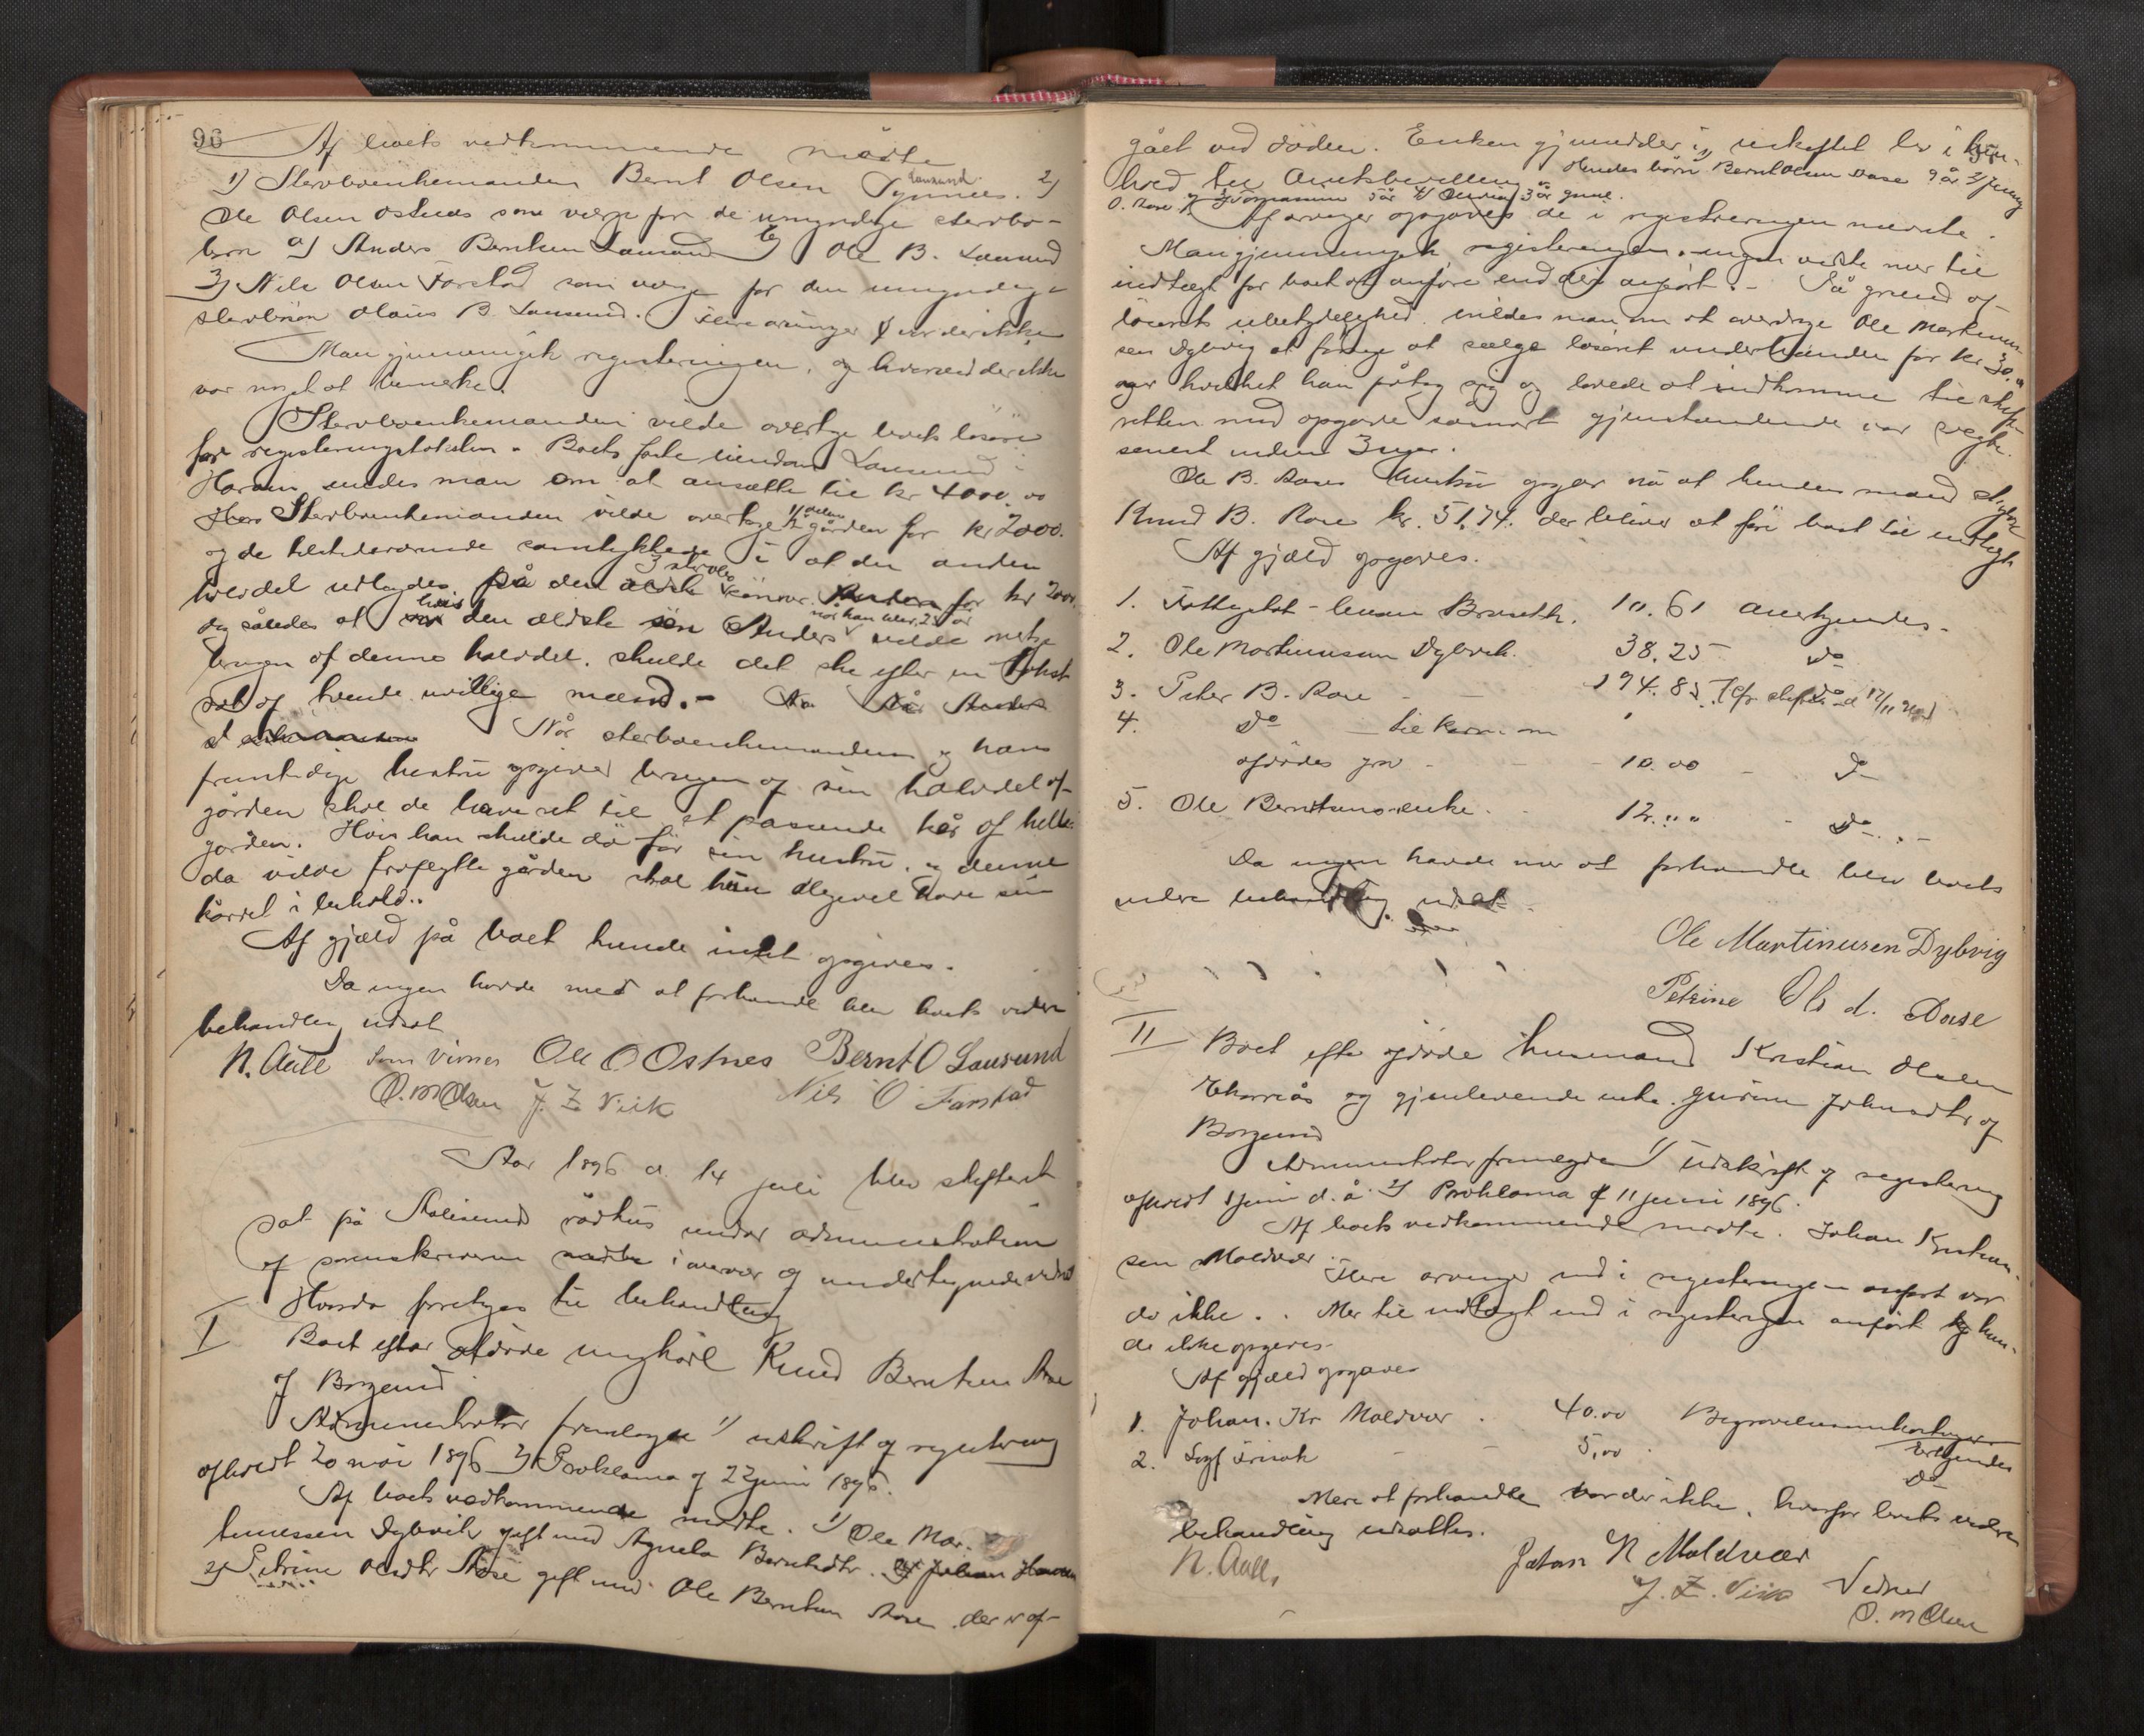 96
Af boets vedkommende mødte
1) Sterboenkemanden Bernt Olsen Synnes. Lausund 2)
Ole Olsen Ostnes som værge for de umyndige sterbo-
børn a) Anders Berntsen Lausund b) Ole B. Lausund
3) Nils Olsen Farstad som værge for den umyndige
sterbsøn Olaus B. Lausund. Flere arvinger er der ikke
Man gjennemgik registreringen, og hvorved der ikke
var noget at bemerke.
Sterboenkemanden vilde overtage boets løsøre
for registreringstaksten. Boets faste eiendom Lausund i
Haram enedes man om at ansætte til kr 4000.00
Sterboenkemanden vilde overtage 1/2 delen gården for kr 2000.
og de tilstedeværende samtykkede i at den anden
halvdel udlagdes på de 3 sønner for kr 2000
dog således at hvis den ældste søn Anders når han blir 25 år vilde
brugen af denne halvdel, skulde det ske efter en takst
sat af uvillige mænd. -
Når sterboenkemanden og hans
fremtidige hustru opgiver brugen af sin halvdel af
gården skal de have ret til et passende kår af hele
gården. Hvis han skulde dø før sin hustru, og denne
da vilde fraflytte gården skal hun aligevel have sin
kårret i behold.
Af gjæld på boet kunde intet opgives.
Da ingen havde mer at forhandle blev boets videre
behandling udsat
N. Aall som vidner Ole O Ostnes Bernt O Lausund
O. M Olsen J. Z Viik Nils O Farstad
Aar 1896 d. 14 juli blev skifteret
sat på Aalesunds rådhus under administration
af sorenskriveren i overvær af undertegnede vidner
Hvorda foretoges til behandling
I Boet efter afdøde ungkarl Knud Berntsen Aase
af Borgund
Administrator fremlagde 1) udskrift af registrering
afholdt 20 mai 1896 2) Proklama af 22 juni 1896.
Af boets vedkommende mødte. 1) Ole Mar-
tinussen Dybvik gift med Agnete Berntsdtr.
2) Petrine Olsdtr Aase gift med Ole Berntsen Aase der er af-
gået ved døden. Enken gjensidder i uskiftet bo i hen-
hold til Amtsbevilling Hendes børn 1) Bernt Olsen Aase 9 år 2)
O. Aase 3) 5 år 4) 3 år gml.
Af arvinger opgaves de i registreringen nævnte.
Man gjennemgik registreringen. Ingen vidste mer til
indtægt for boet at anføre end der anført. - På grund af
løsørets ubetydelighed enedes man om at overdrage Ole Martinus-
sen Dybvig at forsøge at sælge løsøret underhånden for kr. 30.00
hvilket han påtog sig og lovede at indkomme til skifte-
retten med opgave såsnart gjenstandende var solgte
senest inden 3 uger.
Ole B. Aases hustru opgav nu at hendes mand skyldte
Knud B. Aase kr. 51.74. der bliver at føre boet til indtægt
Af gjæld opgaves.
1. Fattigfat-lensm Bruseth. 10.61 anerkjendes.
2. Ole Martinussen Dybvik. 38.25 do
3. Peter B. Aase - 194.85 do
4. do til
afdødes grav - 10.00 - do
5. Ole Berntsens enke. 12.00 - do.
Da ingen havde mer at forhandle blev boets
videre behandling udsat.
Ole Martinusen Dybvig
Petrine Ols d. Aase
II Boet efter afdøde husmand Kristian Olsen
og gjenlevende enke Gurine af
Borgund
Administrator fremlagde 1) Udskrift af registrering
afholdt 1 juni d. å. 2) Proklama af 11 juni 1896.
Af boets vedkommende mødte. Johan Kristian-
sen Moldvær. Flere arvinger end i registeringen anført var
de ikke. Mer til indtægt end i registeringen anført kun-
de ikke opgives.
Af gjæld opgaves
1. Johan. Kr Moldvær . 40.00 Begravelsesomkostninger
Erkjendes
2. - - 5.00 . do
Mere at forhandle var der ikke, hvorfor boets videre
behandling udsattes.
N. Aall, Johan K Moldvær
J. Z. Viik Vidner
O. M Olsen